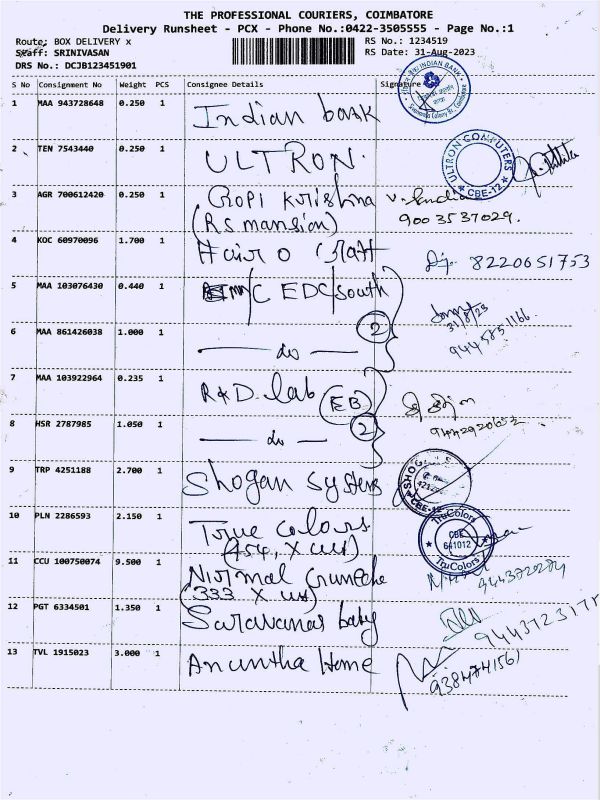 THE PROFESSIONAL COURIERS, COIMBATORE
Delivery Runsheet - PCX - Phone No.:0422-3505555 - Page No.:1
Route: BOX DELIVERY x RS No.: 1234519
Staff: SRINIVASAN RS Date: 31-Aug-2023
DRS No.: DCJB123451901
S No Consignment No Weight PCS Consignee Details Signature
1 MAA 943728648 0.250 1 Indian bank
INDIAN BANK
2 TEN 7543440 0.250 1 ULTRON.
ULTRON COMPUTERS
CBE-12
3 AGR 700612420 0.250 1 Gopi Krishna
(Rs mansion) 9003537029.
4 KOC 60970096 1.700 1 Hair O Craft 8220651753
5 MAA 103076430 0.440 1 C EDC/South
31/8/23
9445851166.
6 MAA 861426038 1.000 1 — do — 2
7 MAA 103922964 0.235 1 R&D. lab (EB)
8 HSR 2787985 1.050 1 — do — 2
9 TRP 4251188 2.700 1 Shogan Systems
CBE-12
10 PLN 2286593 2.150 1 True colors
(454, X cut)
TruColors
CBE
641012
TruColors
11 CCU 100750074 9.500 1 Nirmal
(333 X cut)
12 PGT 6334501 1.350 1 Saravanas baby
13 TVL 1915023 3.000 1 Anuntha Home
9384741561